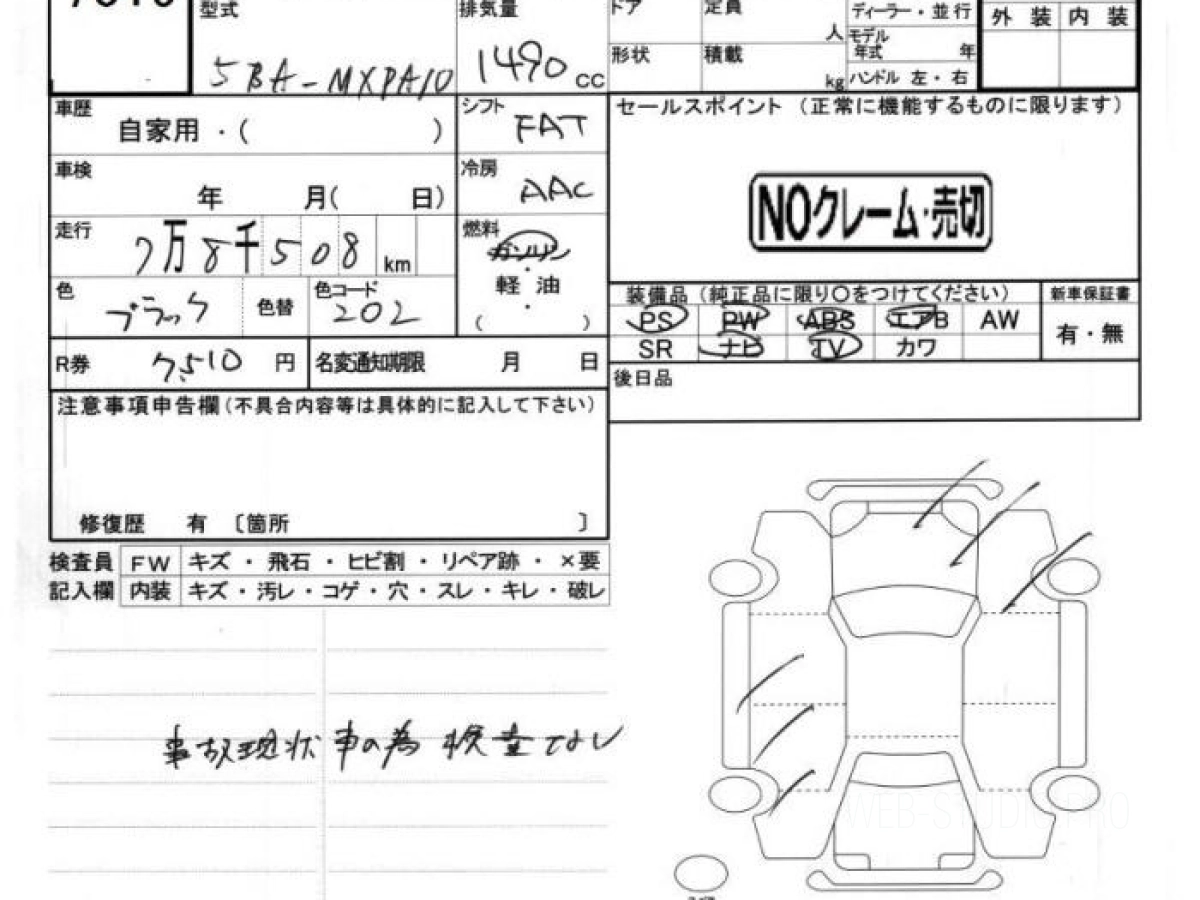 型式
5BA-MXPA10
排気量
1490 cc
ドア
定員
人
形状
積載
kg
ディーラー・並行
モデル年式 年
ハンドル 左・右
外 装 内 装
車歴
自家用・( )
シフト
FAT
車検
年 月( 日)
冷房
AAC
走行
7万8千508 km
燃料
ガソリン
・
軽 油
・
( )
色
ブラック
色替
色コード
202
R券 7,510 円
名変通知期限 月 日
セールスポイント (正常に機能するものに限ります)
NOクレーム・売切
装備品 (純正品に限り○をつけてください)
新車保証書
PS PW ABS エアB AW
有・無
SR ナビ TV カワ
後日品
注意事項申告欄(不具合内容等は具体的に記入して下さい)
修復歴 有 〔箇所 〕
検査員 FW キズ ・ 飛石 ・ ヒビ割 ・ リペア跡 ・ ×要
記入欄 内装 キズ・汚レ・コゲ・穴・スレ・キレ・破レ
事故現状車の為 検査なし
WEB-STUDIO.PRO